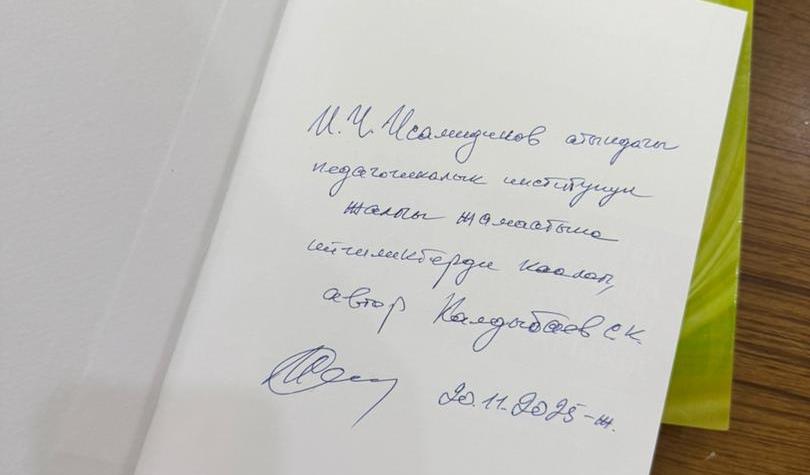 И. Ч. Исамидинов атындагы
педагогикалык институнун
жалпы жамаатына
ийгиликтерди каалап,
автор Калдыбаев С.К.
20.11.2025-ж.